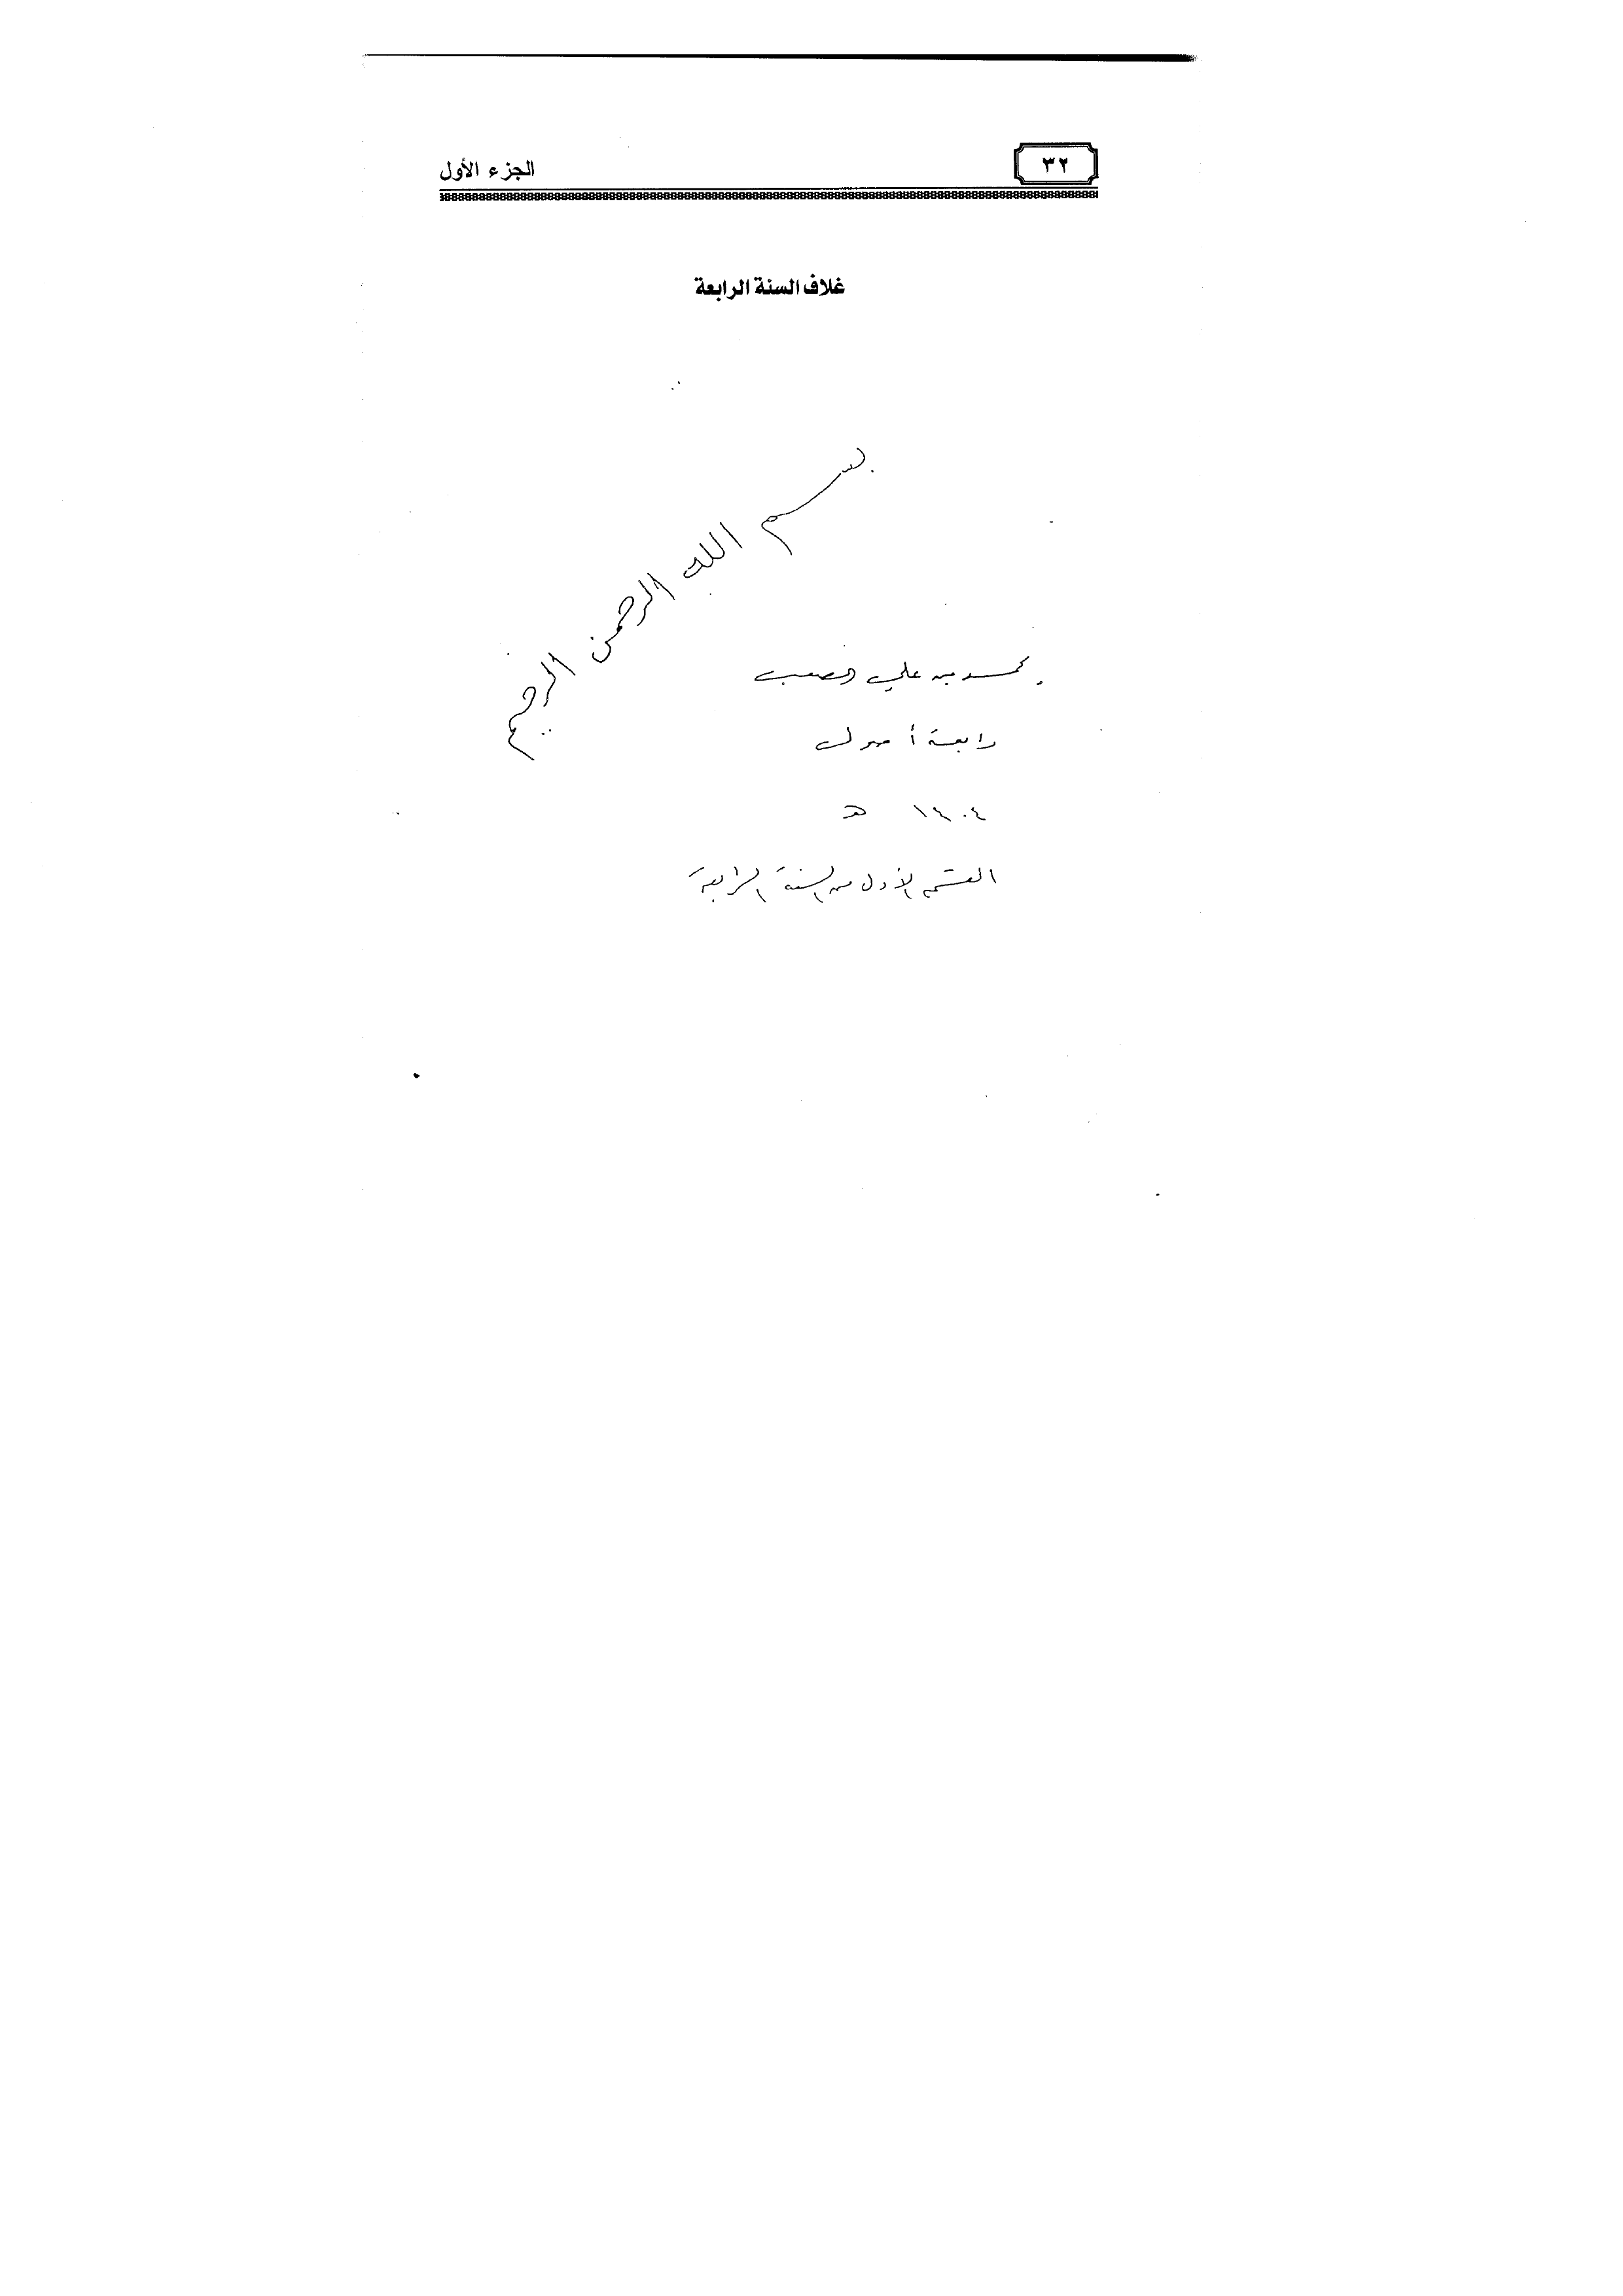 ٣٢
الجزء الأول
غلاف السنة الرابعة
بسم الله الرحمن الرحيم
بن علي
رابعة أصول
١٤٠٤ هـ
القسم الأول من السنة الرابعة